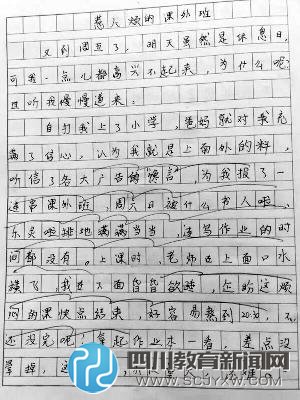 惹人烦的课外班
又到周五了，明天虽然是休息日，
可我一点儿都高兴不起来，为什么呢？
且听我慢慢道来。
自打我上了小学，爸妈就对我充
满了信心，认为我就是上面外的料，
听信了各大广告的谗言，为我报了一
连串课外班，周六日被什么书人啦、
东关啦排地满满当当，连写作业的时
间都没有。上课时，老师在上面口水
横飞，我在下面昏昏欲睡，在盼这烦
闷的课快点结束，好容易熬到20:30，
还没完呢！拿起作业本一看，差点没
晕掉，这
四川教育新闻网
WWW.SCJYXW.COM